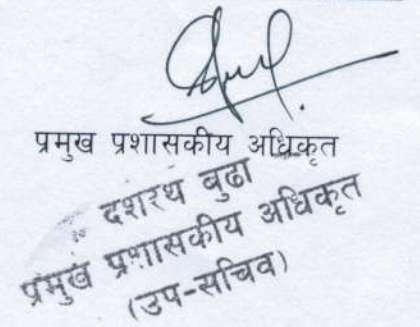 प्रमुख प्रशासकीय अधिकृत
दशरथ बुढा
प्रमुख प्रशासकीय अधिकृत
(उप-सचिव)